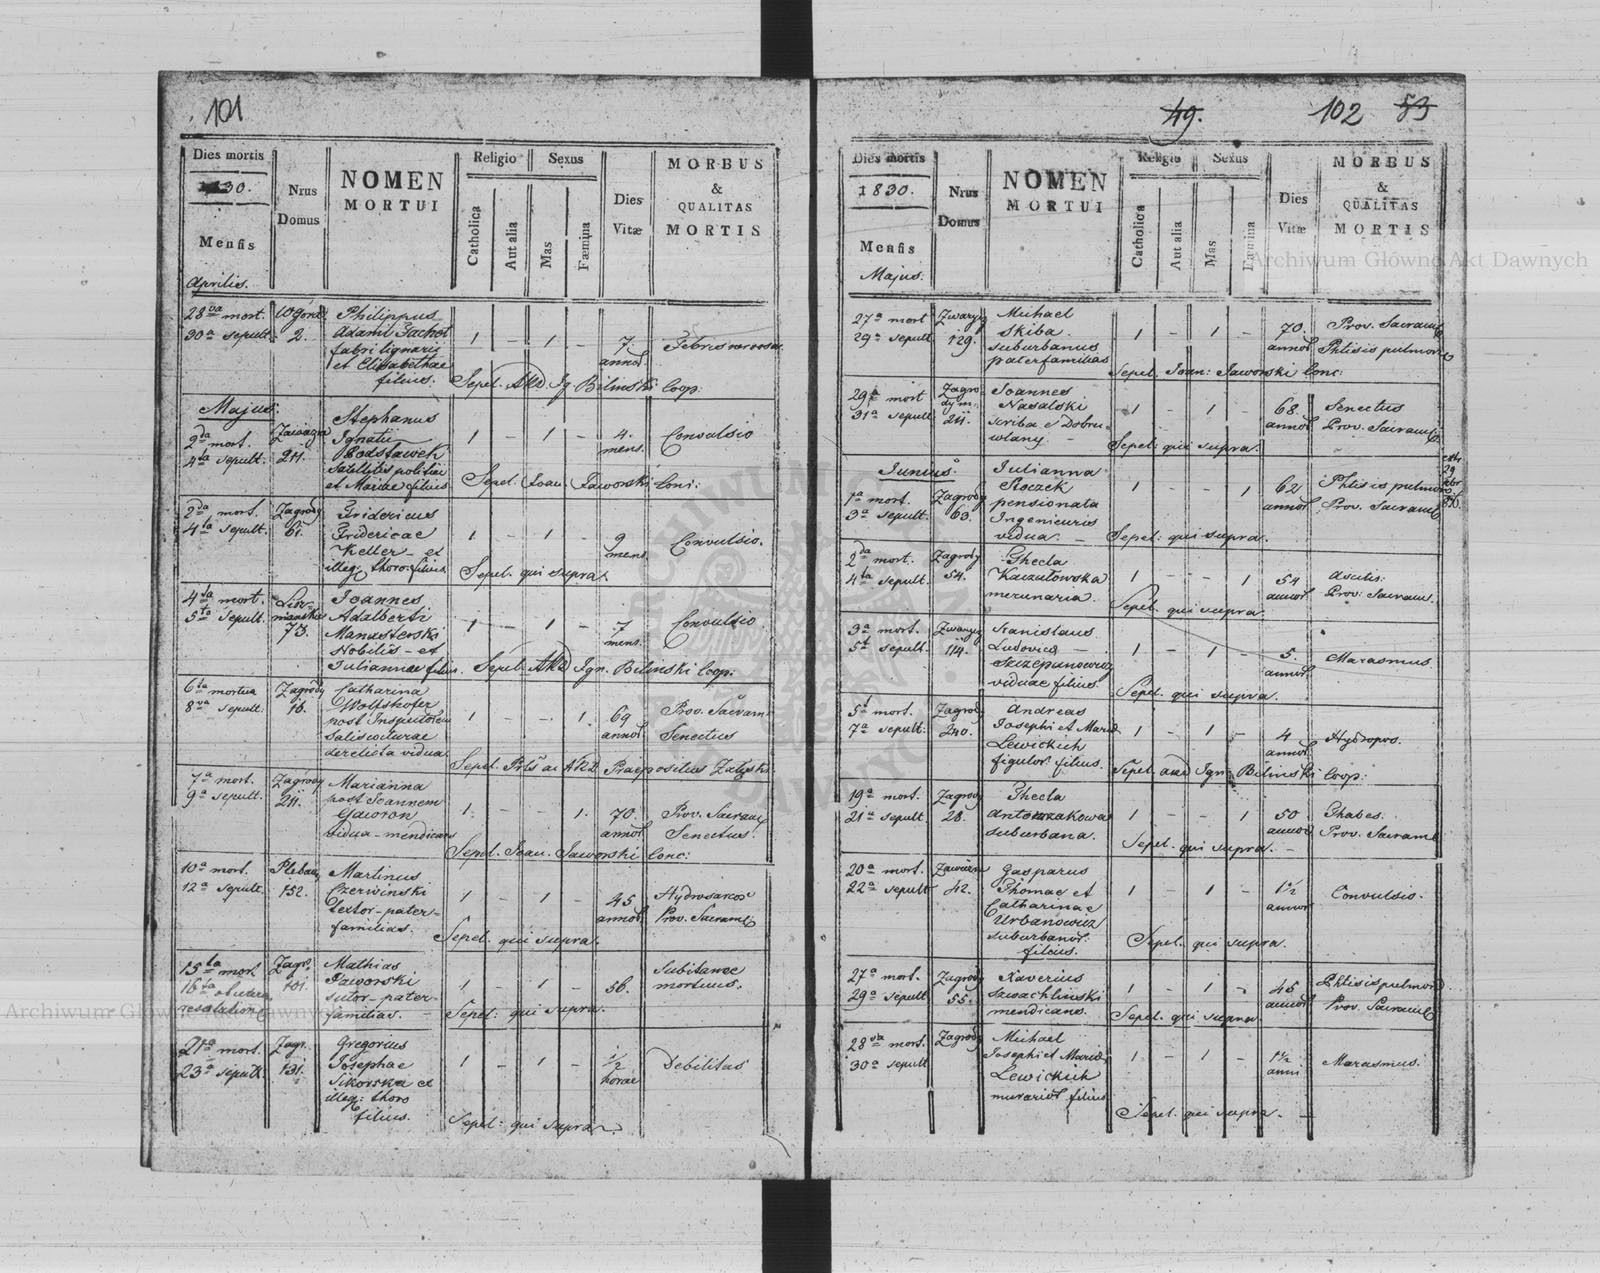 101
Dies mortis
1830.
Mensis
Aprilis.
Nrus
Domus
NOMEN
MORTUI
Religio
Catholica
Aut alia
Sexus
Mas
Fæmina
Dies
Vitæ
MORBUS
&
QUALITAS
MORTIS
28va mort. Philippus
30a sepult. 2. Adami
fabri lignarii 1 - 1 - 7.
et Elisabethae annor
filius. Sepel. Ign Bilinski Coop:
Majus.
Stephanus
2da mort. Ignatii 1 - 1 - 4. Convulsio
4ta sepult. 211. Podstawek mens.
satellitis politiae
et Mariae filius Sepel. Joan. Jaworski Conc:
2da mort. Zagrody Fridericus
4ta sepult. 61. Fridericae 1 - 1 - 9 Convulsio.
Keller et mens.
illeg: thoro filius. Sepel. qui supra.
4ta mort. Joannes
5ta sepult. 73. Adalberti 1 - 1 - 7 Convulsio
Manasterski mens.
Nobilis et
Juliannae filius. Sepel. Ign. Bilinski Coop.
6ta mortua Zagrody Catharina
8va sepult. 16. Woltshofer 1 - - 1. 69 Prov. Sacram
post Inspectorem annor Senectus
saliscocturae
derelicta vidua Sepel. Praepositus
7a mort. Zagrody Marianna
9a sepult. 211. post Joannem 1. - - 1. 70. Prov. Sacram
Gaworon annor Senectus.
vidua mendicans Sepel. Joan. Jaworski Conc:
10a mort. Martinus
12a sepult. 152. Czerwinski 1 - 1 - 45
textor pater- annor Prov. Sacram
familias. Sepel. qui supra.
15ta mort Zagr. Mathias Subitanee
16ta 101. Jaworski 1 - 1 - 56. mortuus.
sutor pater-
familias. Sepel: qui supra.
21a mort. Zagr. Gregorius
23a sepult. 131. Josephae 1 - 1 - 1/2 Debilitas
Sikorska et horae
illeg: thoro
filius. Sepel: qui supra
49.
102
53
Dies mortis
1830.
Mensis
Majus.
Nrus
Domus
NOMEN
MORTUI
Religio
Catholica
Aut alia
Sexus
Mas
Fæmina
Dies
Vitæ
MORBUS
&
QUALITAS
MORTIS
27a mort Michael
29a sepult 129. Skiba 1 - 1 - 70. Prov. Sacram
suburbanus annor Phtisis pulmon
paterfamilias Sepel. Joan: Jaworski Conc:
29a mort Joannes
31a sepult 211. Nasalski 1 - 1 - 68. Senectus
scriba annor Prov. Sacram
Sepel. qui supra.
Junius. Julianna
1a mort. Zagrody Stoczek 1 - - 1 62 Phtisis pulmon
3a sepult. 63. pensionata annor Prov. Sacram
Ingenieuris
vidua. Sepel: qui supra.
2da mort. Zagrody Thecla
4ta sepult. 54. Kaczalowska 1 - - 1 54 Ascitis.
annor Prov: Sacram.
Sepel. qui supra.
3a mort. Stanislaus
5t sepult. 114. Ludovica 1 - 1 - 5. Marasmus
Szczepanowicz annor
viduae filius Sepel. qui supra.
5t mort. Zagrody Andreas
7a sepult. 240. Josephi et Maria 1 - 1 - 4 Hydrops.
Lewickich annor
figulor. filius. Sepel. Ign. Bilinski Coop:
19a mort. Zagrody Thecla
21a sepult 28. Antoszakowa 1 - - 1 50 Thabes.
suburbana. annor Prov. Sacram
Sepel. qui supra.
20a mort. Gasparus
22a sepult 42. Thomae et 1 - 1 - 1½ Convulsio.
Catharinae annor
Urbanowicz
suburbanor.
filius. Sepel. qui supra.
27a mort. Zagrody Xaverius
29a sepult 55. Szwachlinski 1 - 1 - 45 Phtisis pulmon.
mendicans. annor Prov. Sacram
Sepel. qui supra
28va mort. Zagrody Michael
30a sepult Josephi et Maria 1 - 1 - 1½ Marasmus.
Lewickich anni
murarior. filius
Sepel. qui supra.
Archiwum Główne Akt Dawnych
Archiwum Główne Akt Dawnych